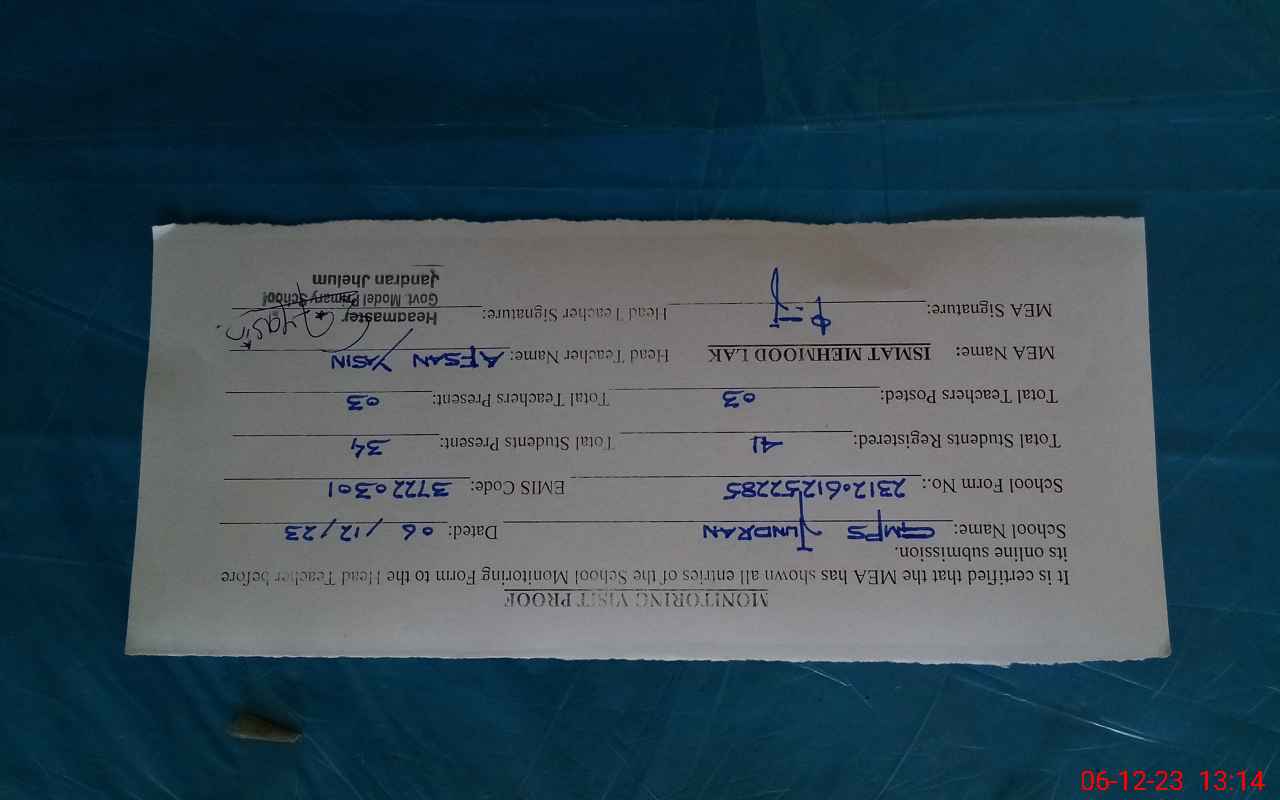 MONITORING VISIT PROOF
It is certified that the MEA has shown all entries of the School Monitoring Form to the Head Teacher before
its online submission.
School Name: GMPS JUNDRAN Dated: 06/12/23
School Form No.: 2312061252285 EMIS Code: 37220301
Total Students Registered: 41 Total Students Present: 34
Total Teachers Posted: 03 Total Teachers Present: 03
MEA Name: ISMAT MEHMOOD LAK Head Teacher Name: AFSAN YASIN
MEA Signature: Head Teacher Signature: Headmaster
Govt. Model Primary School
Jandran Jhelum
06-12-23 13:14